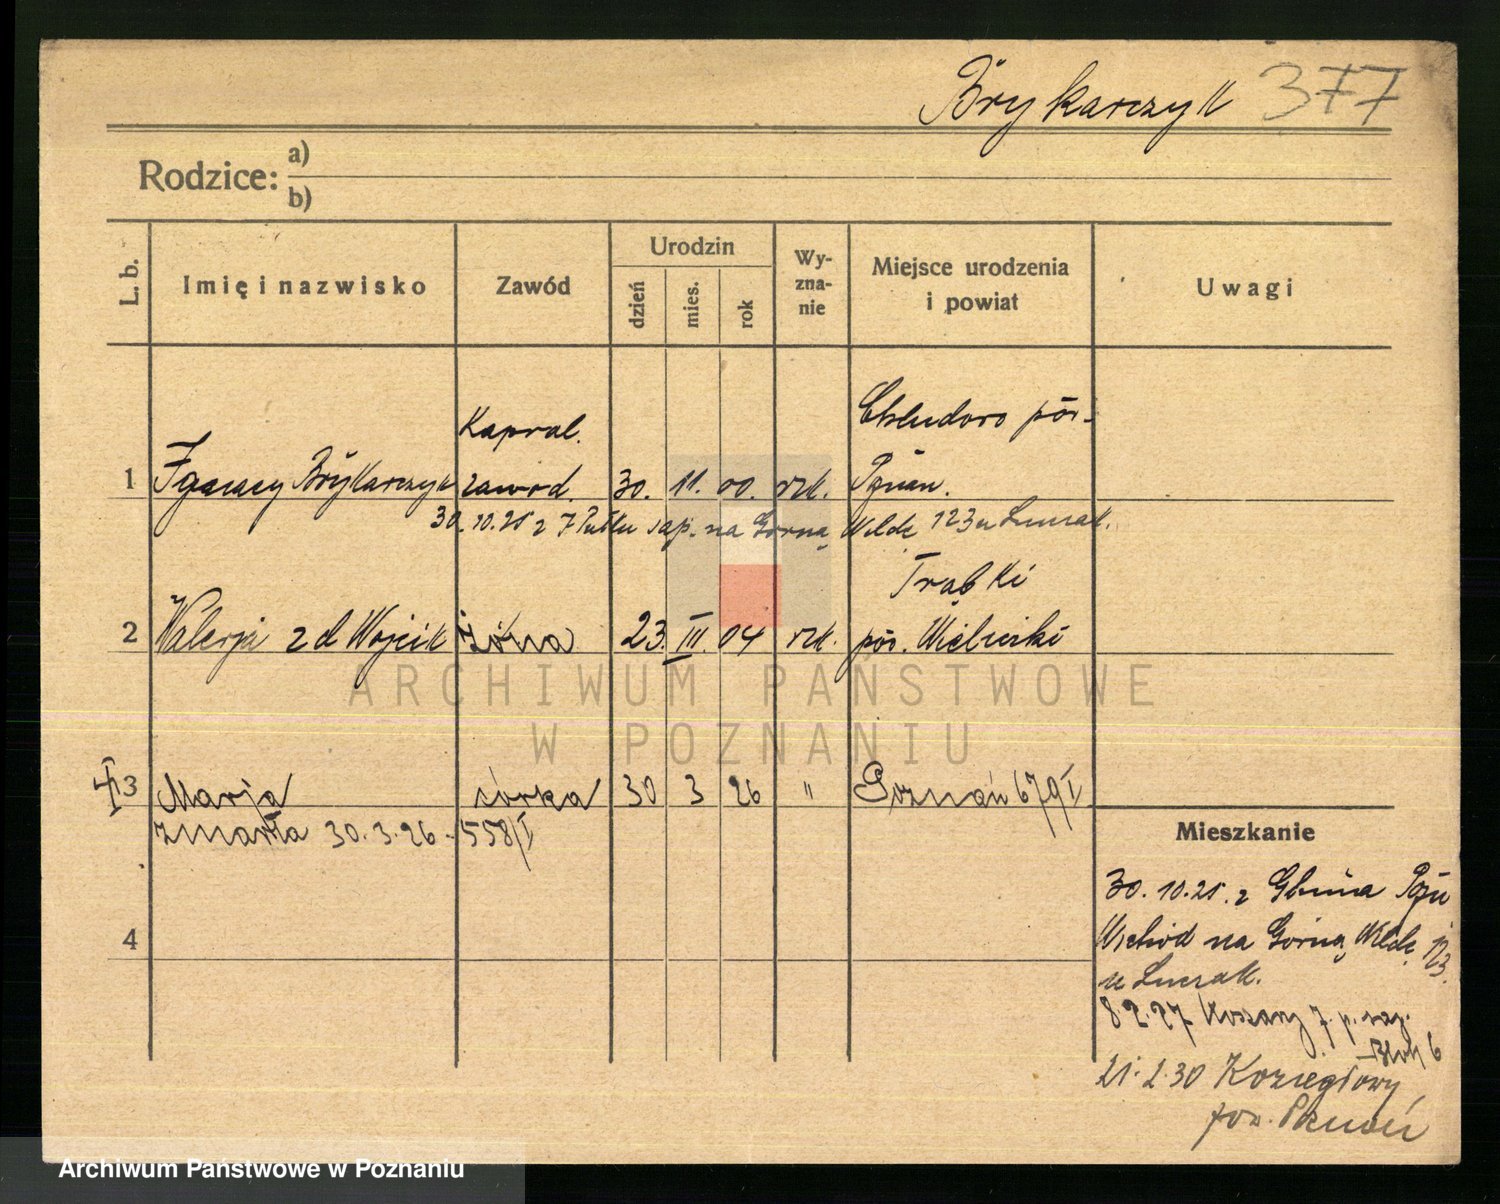 Brykarczyk 377
Rodzice: a)
b)
L. b. Imię i nazwisko Zawód Urodzin dzień mies. rok Wy-zna-nie Miejsce urodzenia i powiat Uwagi
Kapral. Chludowo pow.
1 Ignacy Brykarczyk zawod. 30. 11. 00. rzk. Poznań.
30.10.25 z 7 Pułku sap. na Górną Wildę 123 u
Trąbki
2 Walerja z d Wojcik żona 23. III. 04 rzk. pow. Wielicki
3 Marja córka 30 3 26 " Poznań 679/I
zmarła 30.3.26 - 558/I
Mieszkanie
30.10.25. z
4 Wschód na Górną Wildę 123
u
8.2.27 Koszary 7. p. sap.
Blok 6
21.2.30 Koziegłowy
pow. Poznań
ARCHIWUM PAŃSTWOWE
W POZNANIU
Archiwum Państwowe w Poznaniu